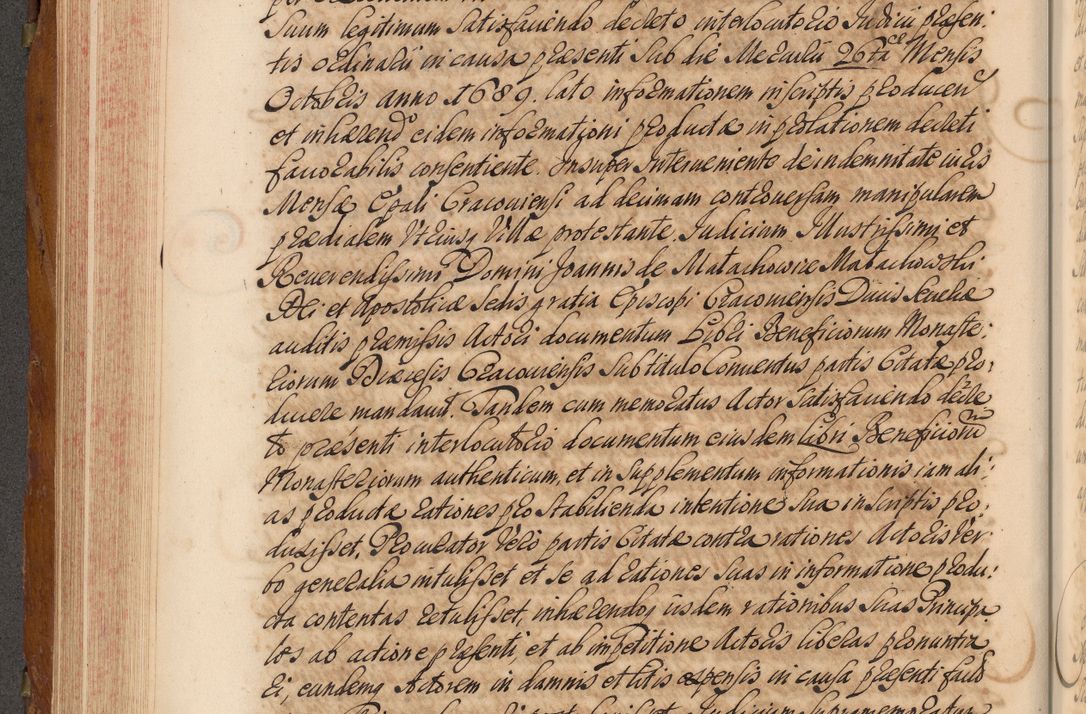 Suum legitimum Satisfaciendo decreto interlocutorio Iudicii præsen:
tis ordinarii in causa præsenti Sub die Mercurii 26ta Mensis
Octobris anno 1689. lato informationem inscriptis producen
et inhærendo eidem informationi productæ in prolationem decreti
favorabilis consentiente. Insuper Interveniente de indemnitate iuris
Mensæ Epali Cracoviensi ad decimam controversam manipularem
prædialem Utriusq Villæ protestante. Iudicium Illustrissimi et
Reverendissimi Domini Joannis de Małachowice Małachowski
Dei et Apostolicæ Sedis gratia Episcopi Cracoviensis Ducis Severiæ
auditis præmissis Actori documentum Libri Beneficiorum Monaste:
riorum Diæcesis Cracoviensis Sub titulo Conventus partis Citatæ pro:
ducere mandavit. Tandem cum memoratus Actor Satisfaciendo decre
to præsenti interlocutorio documentum eiusdem Libri Beneficiorū
Monasteriorum authenticum, et in Supplementum informationis iam ali:
as productæ rationes pro Stabilienda intentione Sua in scriptis pro:
duxisset. Procurator Vero partis Citatæ contra rationes Actoris Ver
bo generalia intulisset et se ad rationes Suas in informatione produ:
cta contentas retulisset, inhærendo iisdem rationibus Suas Principa
les ab actione præsenti et ab impetitione Actoris liberas pronuntia
ri, eundemq Actorem in damnis et litis expensis in causa præsenti factis